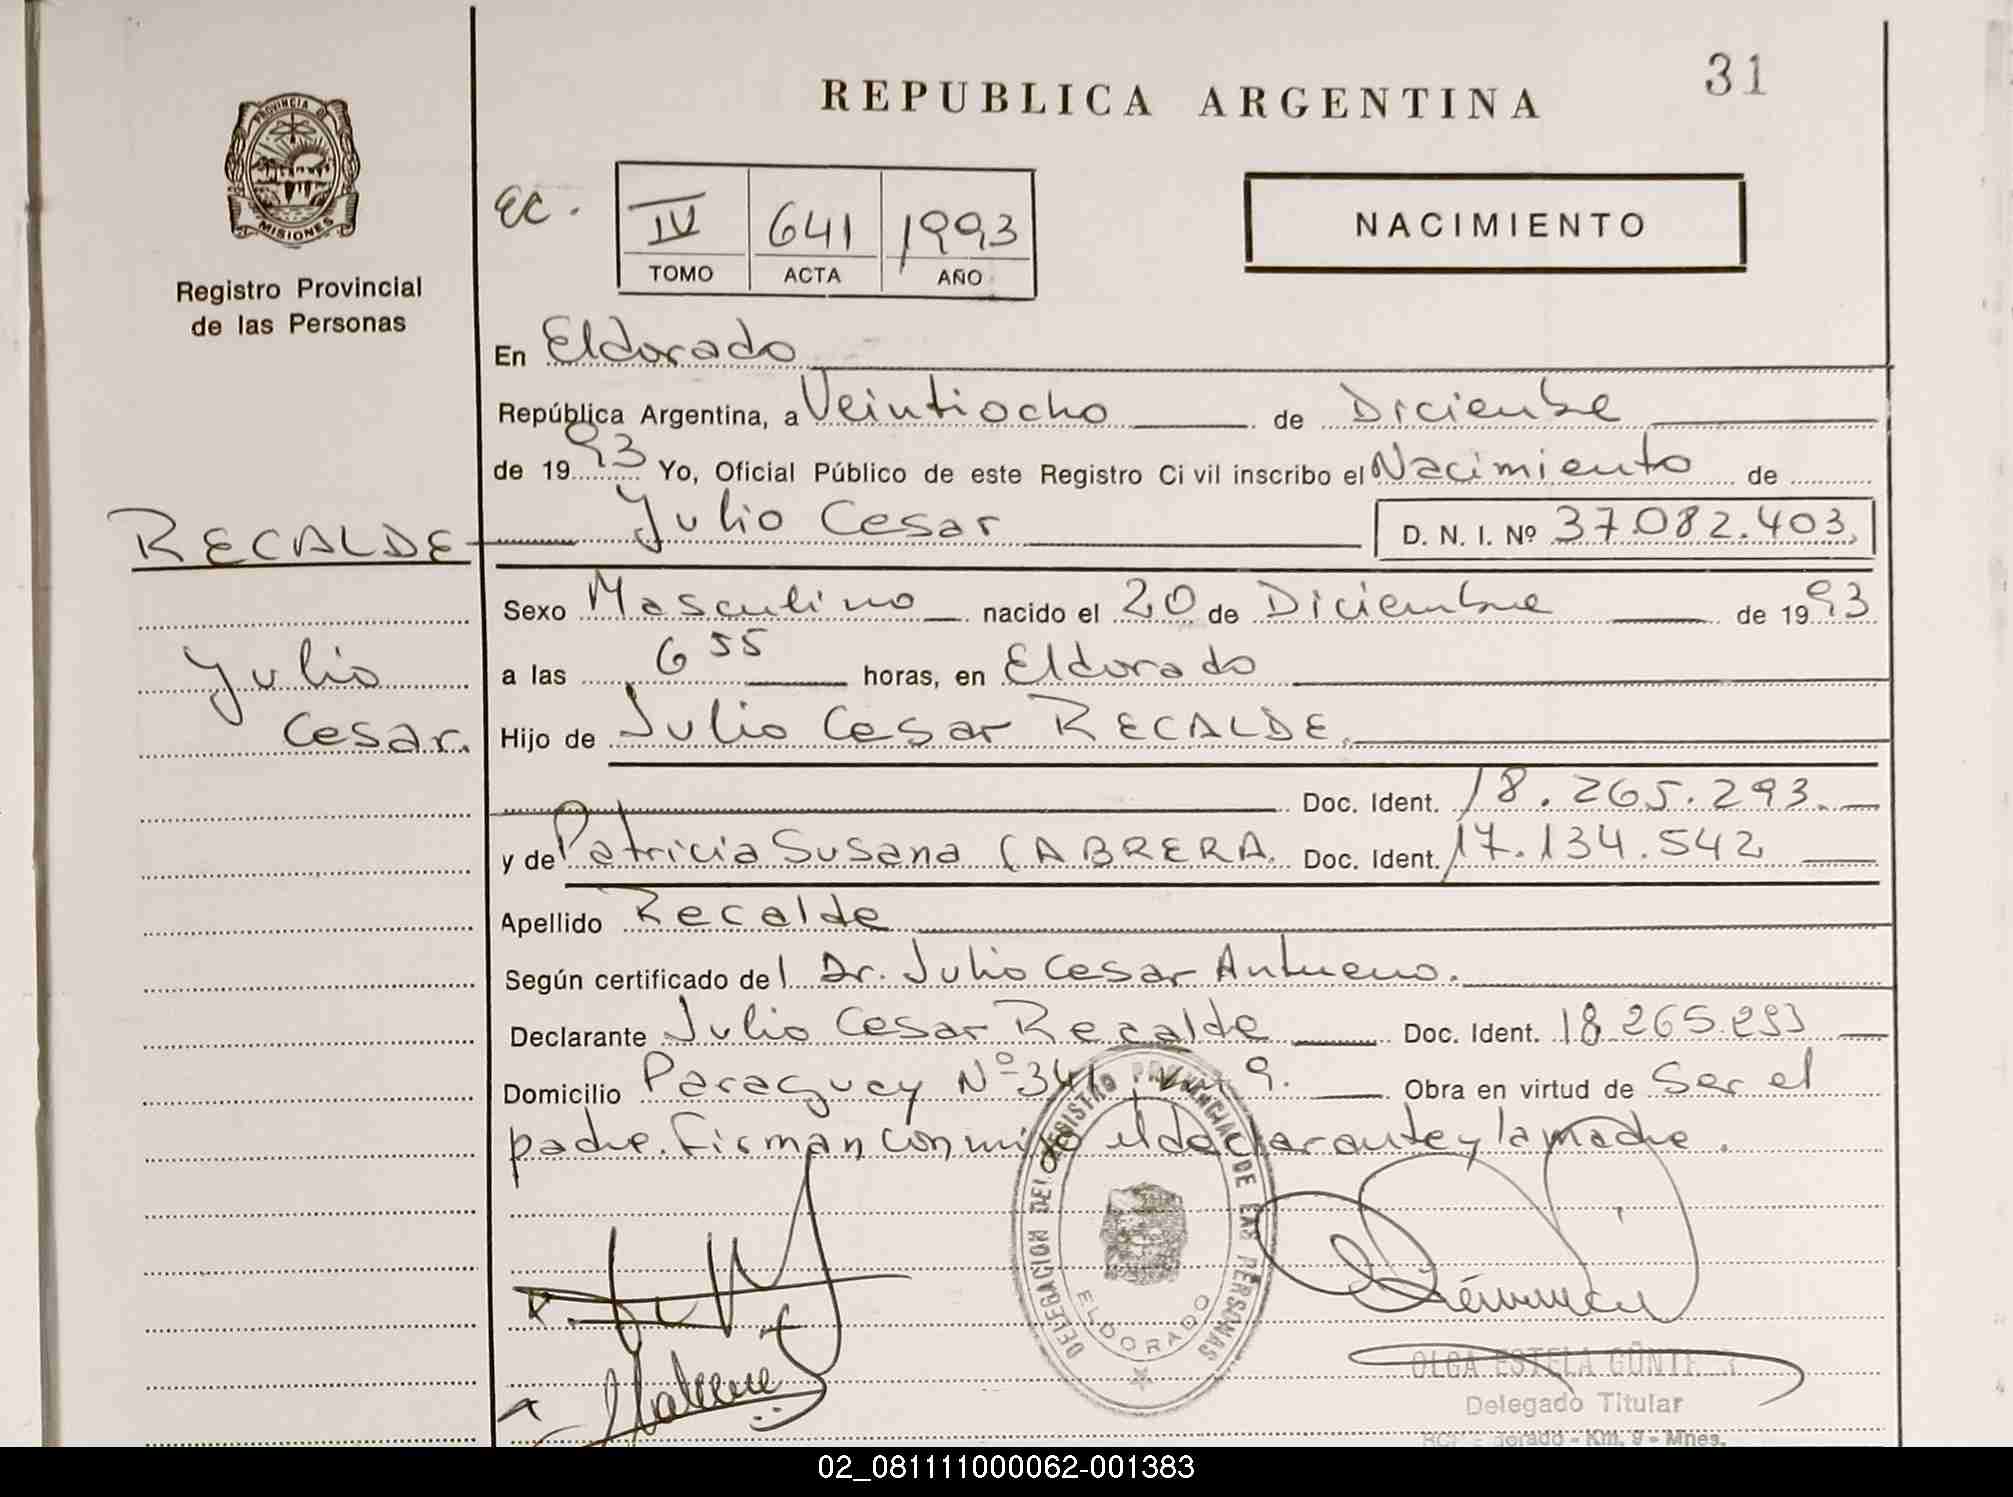 REPUBLICA ARGENTINA
31
PROVINCIA DE
MISIONES
Registro Provincial
de las Personas
EC.
IV 641 1993
TOMO ACTA AÑO
NACIMIENTO
En Eldorado
República Argentina, a Veintiocho de Diciembre
de 1993 Yo, Oficial Público de este Registro Ci vil inscribo el Nacimiento de
RECALDE Julio Cesar D. N. I. Nº 37.082.403.
Sexo Masculino nacido el 20 de Diciembre de 1993
Julio
Cesar.
a las 6 55 horas, en Eldorado
Hijo de Julio Cesar RECALDE.
Doc. Ident. 18.265.293.
y de Patricia Susana CABRERA. Doc. Ident. 17.134.542
Apellido Recalde
Según certificado del Dr. Julio Cesar
Declarante Julio Cesar Recalde Doc. Ident. 18.265.293
Domicilio Paraguay Nº 341 km 9. Obra en virtud de Ser el
padre. Firman conmigo el declarante y la madre.
DELEGACION DEL REGISTRO PROVINCIAL DE LAS PERSONAS
ELDORADO
OLGA ESTELA
Delegado Titular
Eldorado - Km. 9 - Mnes.
02_081111000062-001383